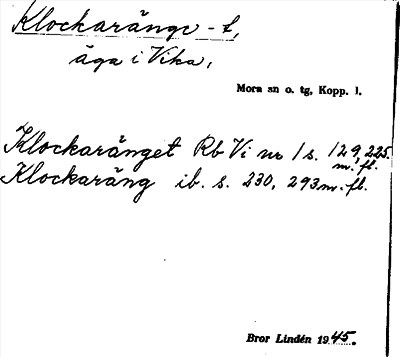 Klockaränge -t,
äga i Vika,
Mora sn o. tg, Kopp. l.
Klockaränget Rb Vi nr 1 s. 129, 225.
m. fl.
Klockaräng ib. s. 230, 293 m. fl.
Bror Lindén 1945.